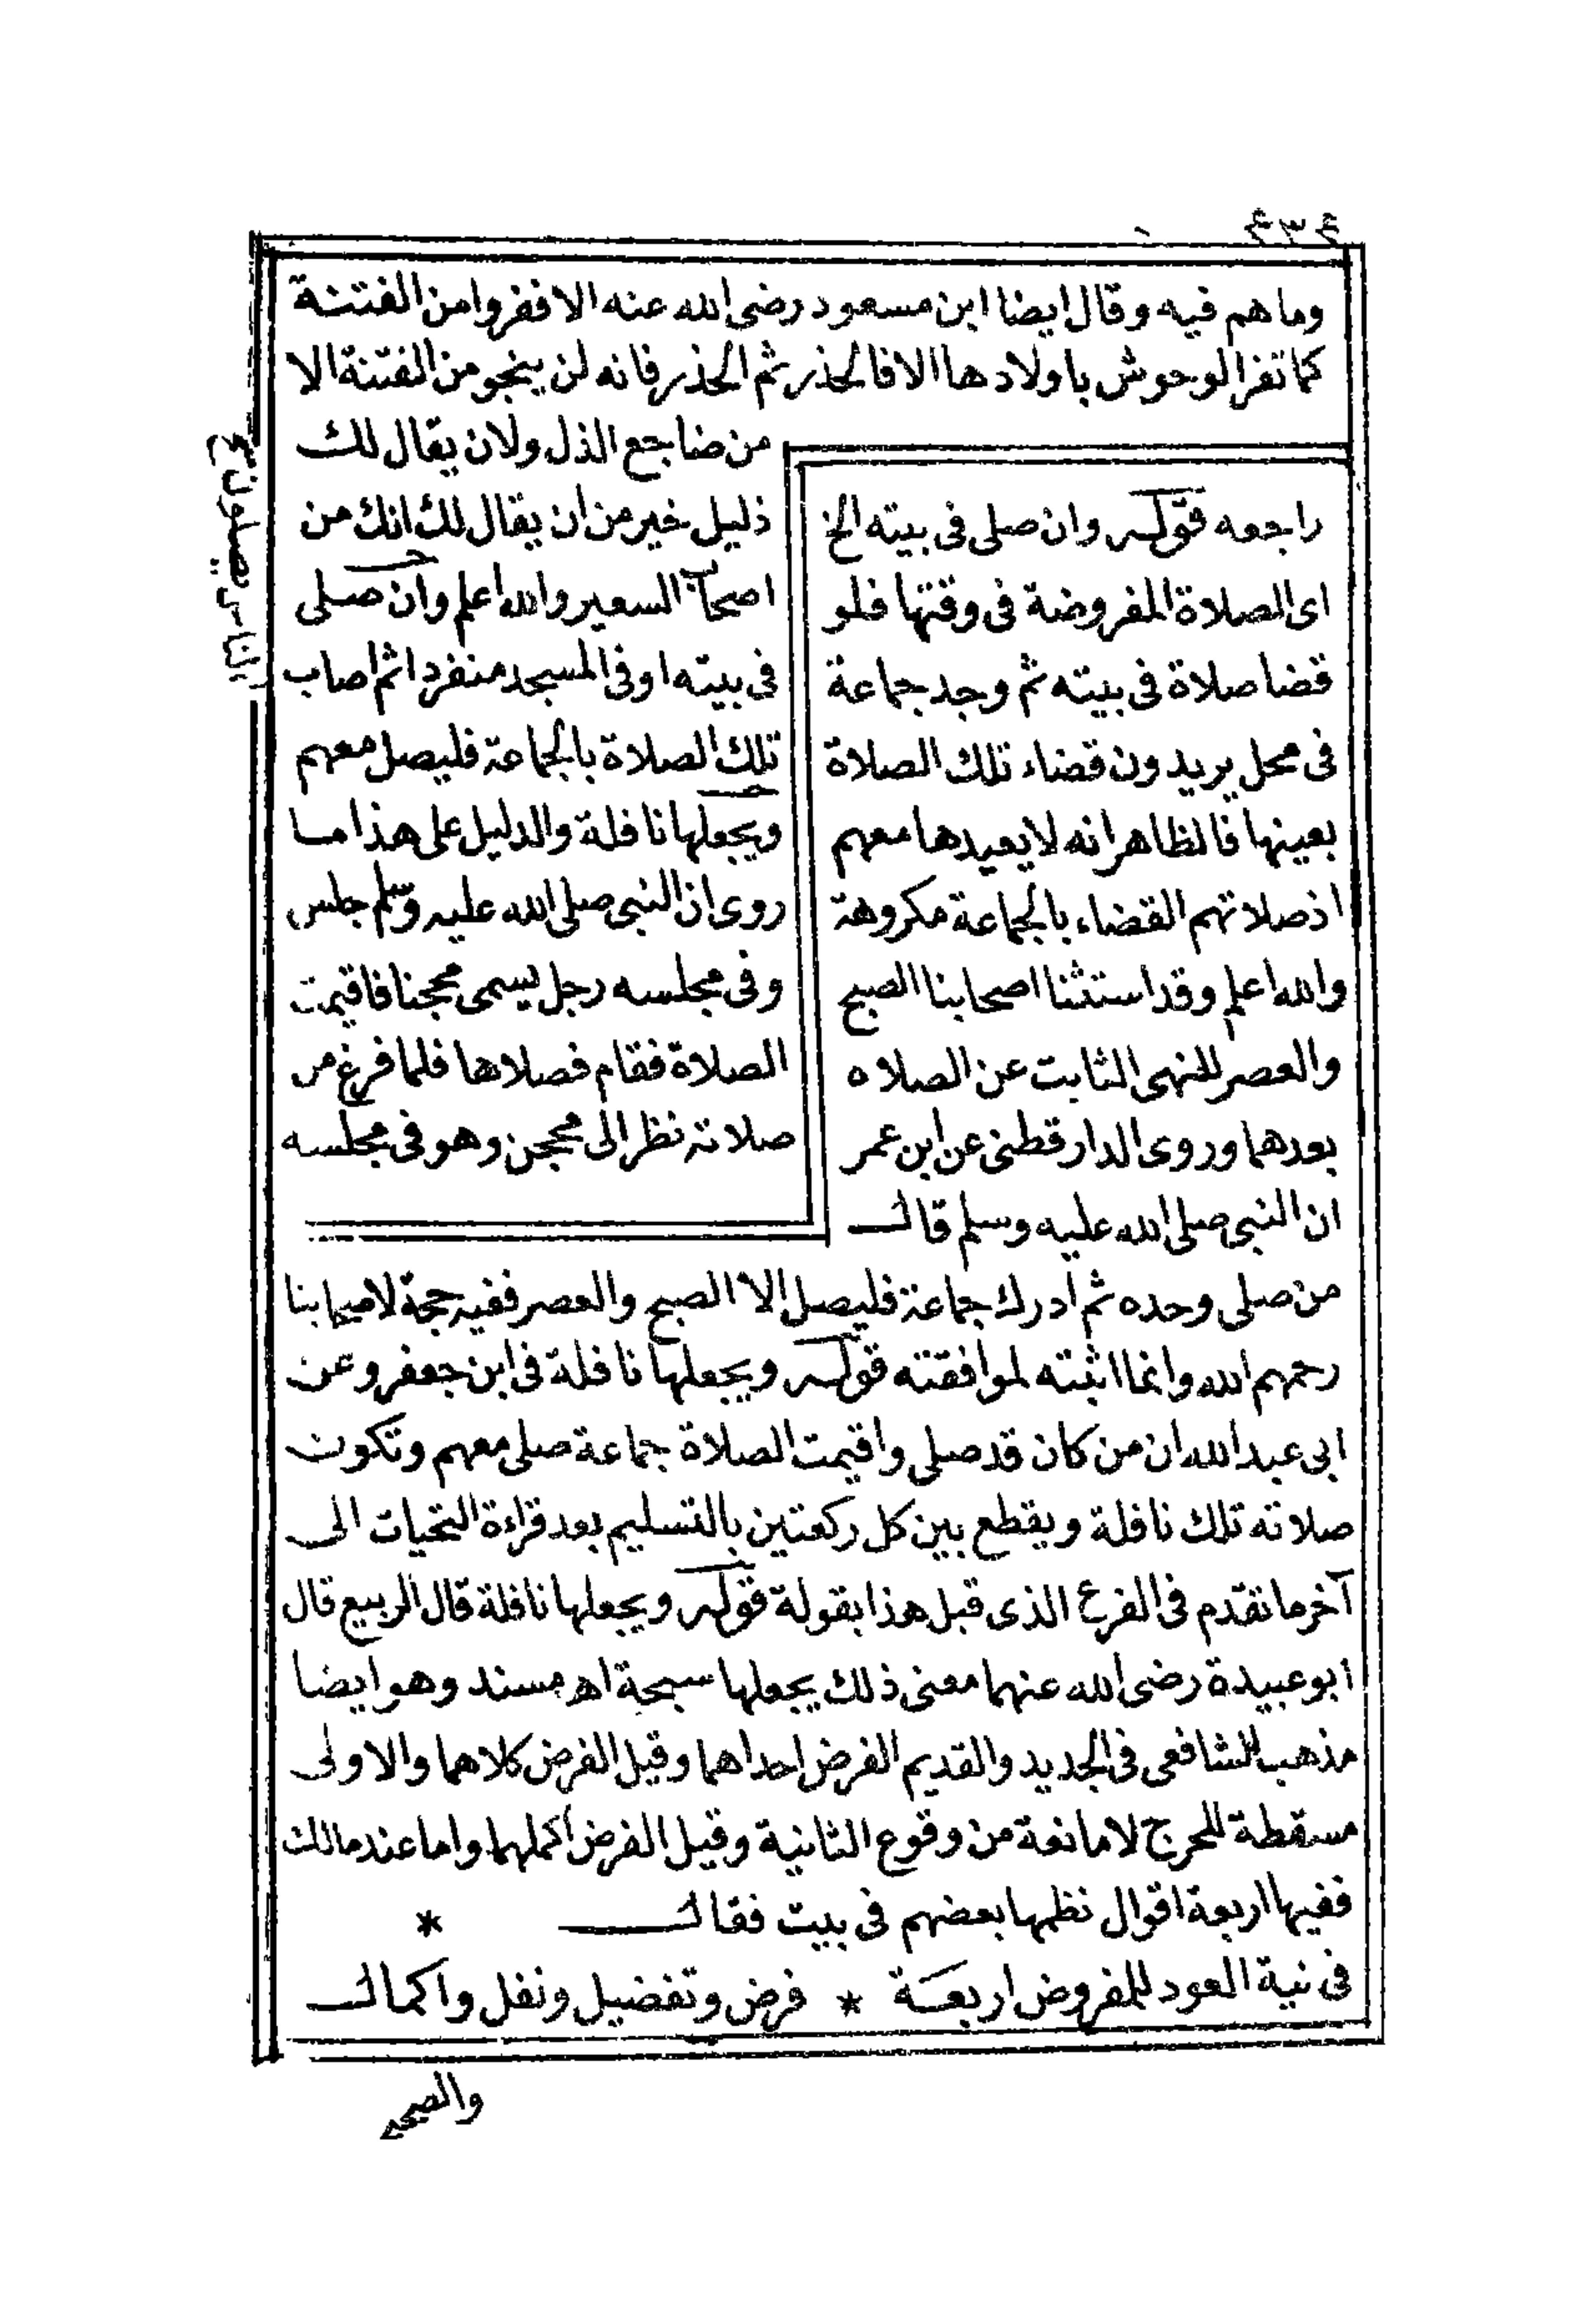 ٤٣٤
وما هم فيه وقال ايضا ابن مسعود رضى الله عنه الا ففروا من الفتنة
كما تفر الوحوش باولادها الا فالحذر ثم الحذر فانه لن ينجو من الفتنة الا
من ضاجع الذل ولان يقال لك
ذليل خير من ان يقال لك انك من
اصحاب السعير والله اعلم وان صلى
فى بيته او فى المسجد منفردا ثم اصاب
تلك الصلاة بالجماعة فليصل معهم
ويجعلها نافلة والدليل على هذا ما
روى ان النبى صلى الله عليه وسلم جلس
وفى مجلسه رجل يسمى محجنا فاقيمت
الصلاة فقام فصلاها فلما فرغ من
صلاته نظر الى محجن وهو فى مجلسه
الناس يصلون
راجعه قوله وان صلى فى بيته الخ
اى الصلاة المفروضة فى وقتها فلو
قضا صلاة فى بيته ثم وجد جماعة
فى محل يريدون قضاء تلك الصلاة
بعينها فالظاهر انه لا يعيدها معهم
اذ صلاتهم القضاء بالجماعة مكروهة
والله اعلم وقد استثنا اصحابنا الصبح
والعصر للنهى الثابت عن الصلاه
بعدهما وروى الدارقطنى عن ابن عمر
ان النبى صلى الله عليه وسلم قال
من صلى وحده ثم ادرك جماعة فليصل الا الصبح والعصر ففيه حجة لاصحابنا
رحمهم الله وانما اثبته لموافقته قوله ويجعلها نافلة فى ابن جعفر وعن
ابى عبد الله ان من كان قد صلى واقيمت الصلاة جماعة صلى معهم وتكون
صلاته تلك نافلة ويقطع بين كل ركعتين بالتسليم بعد قراءة التحيات الى
آخر ما تقدم فى الفرع الذى قبل هذا بقولة قوله ويجعلها نافلة قال الربيع قال
ابو عبيدة رضى الله عنهما معنى ذلك يجعلها سبحة اه مسند وهو ايضا
مذهب للشافعى فى الجديد والقديم الفرض احداهما وقيل الفرض كلاهما والاولى
مسقطة للحرج لا مانعة من وقوع الثانية وقيل الفرض اكملهما واما عند مالك
ففيها اربعة اقوال نظمها بعضهم فى بيت فقال *
فى نية العود للمفروض اربعة * فرض وتفضيل ونفل واكمال
والصحيح